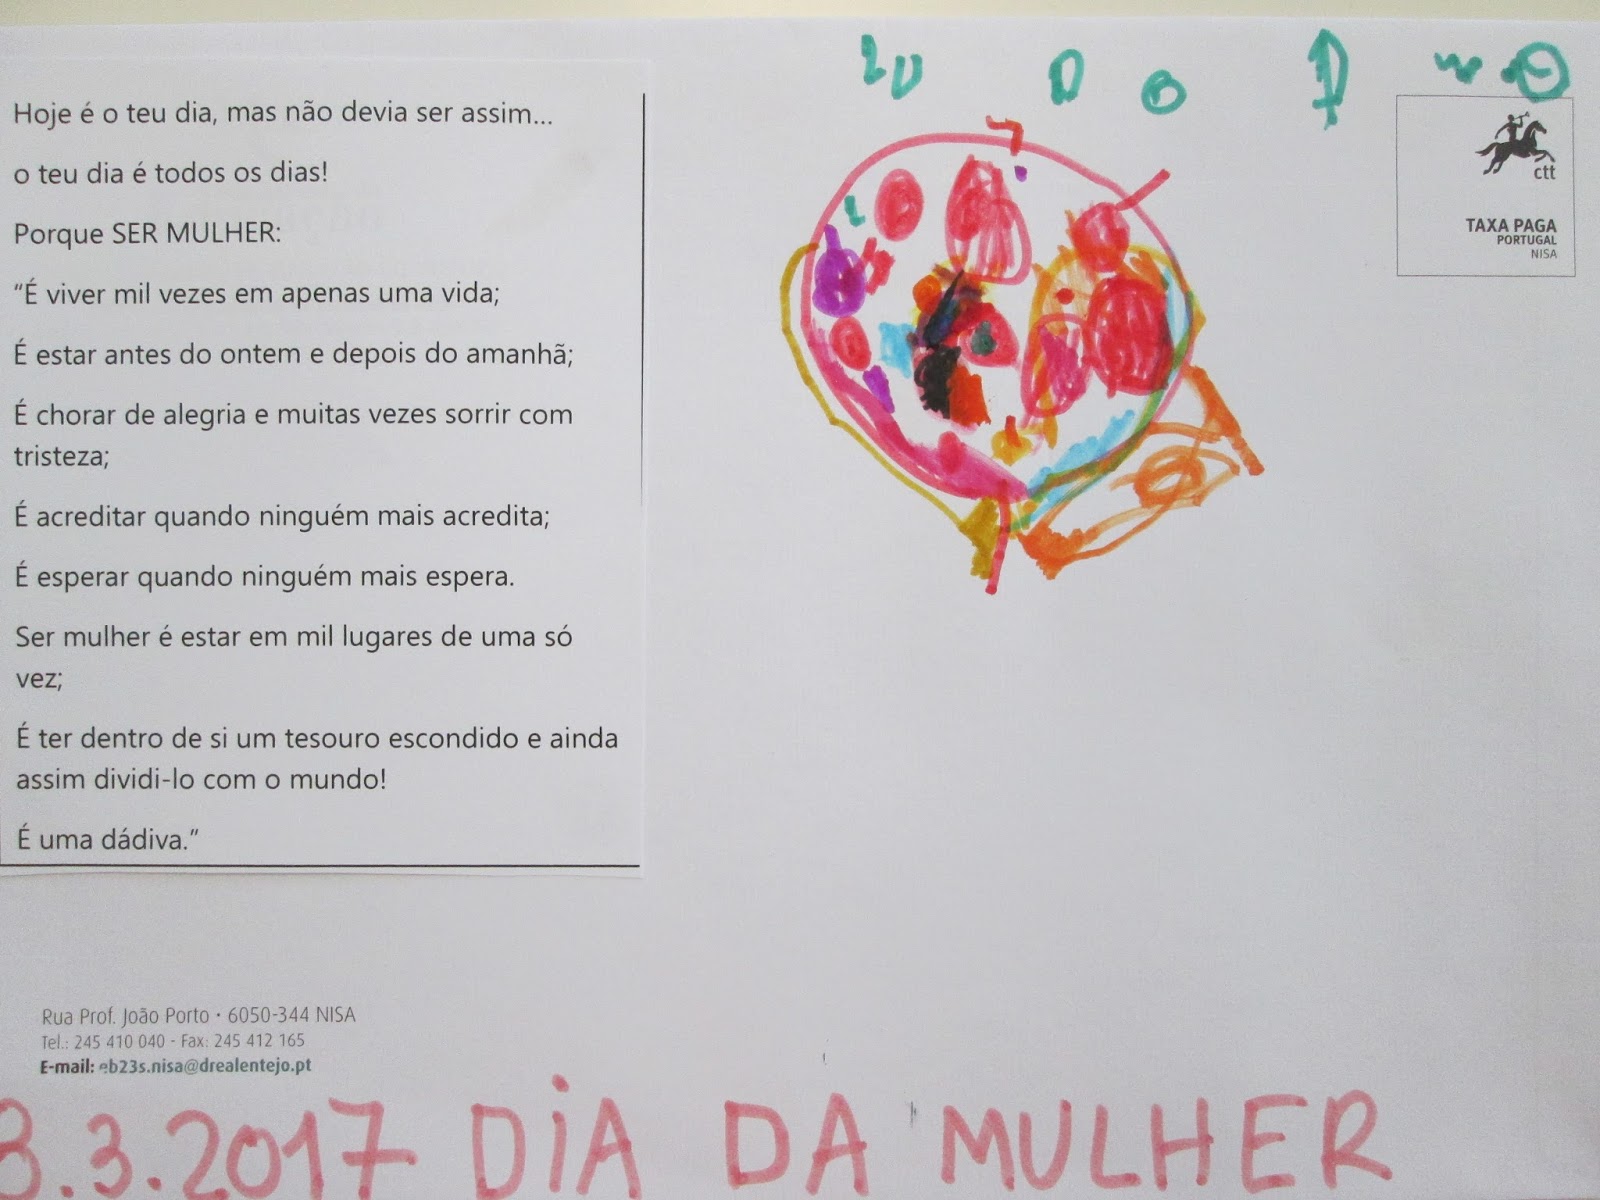 Hoje é o teu dia, mas não devia ser assim...
o teu dia é todos os dias!
Porque SER MULHER:
“É viver mil vezes em apenas uma vida;
É estar antes do ontem e depois do amanhã;
É chorar de alegria e muitas vezes sorrir com
tristeza;
É acreditar quando ninguém mais acredita;
É esperar quando ninguém mais espera.
Ser mulher é estar em mil lugares de uma só
vez;
É ter dentro de si um tesouro escondido e ainda
assim dividi-lo com o mundo!
É uma dádiva.”
ctt
TAXA PAGA
PORTUGAL
NISA
Rua Prof. João Porto • 6050-344 NISA
Tel.: 245 410 040 - Fax: 245 412 165
E-mail: eb23s.nisa@drealentejo.pt
8.3.2017 DiA DA MULHER